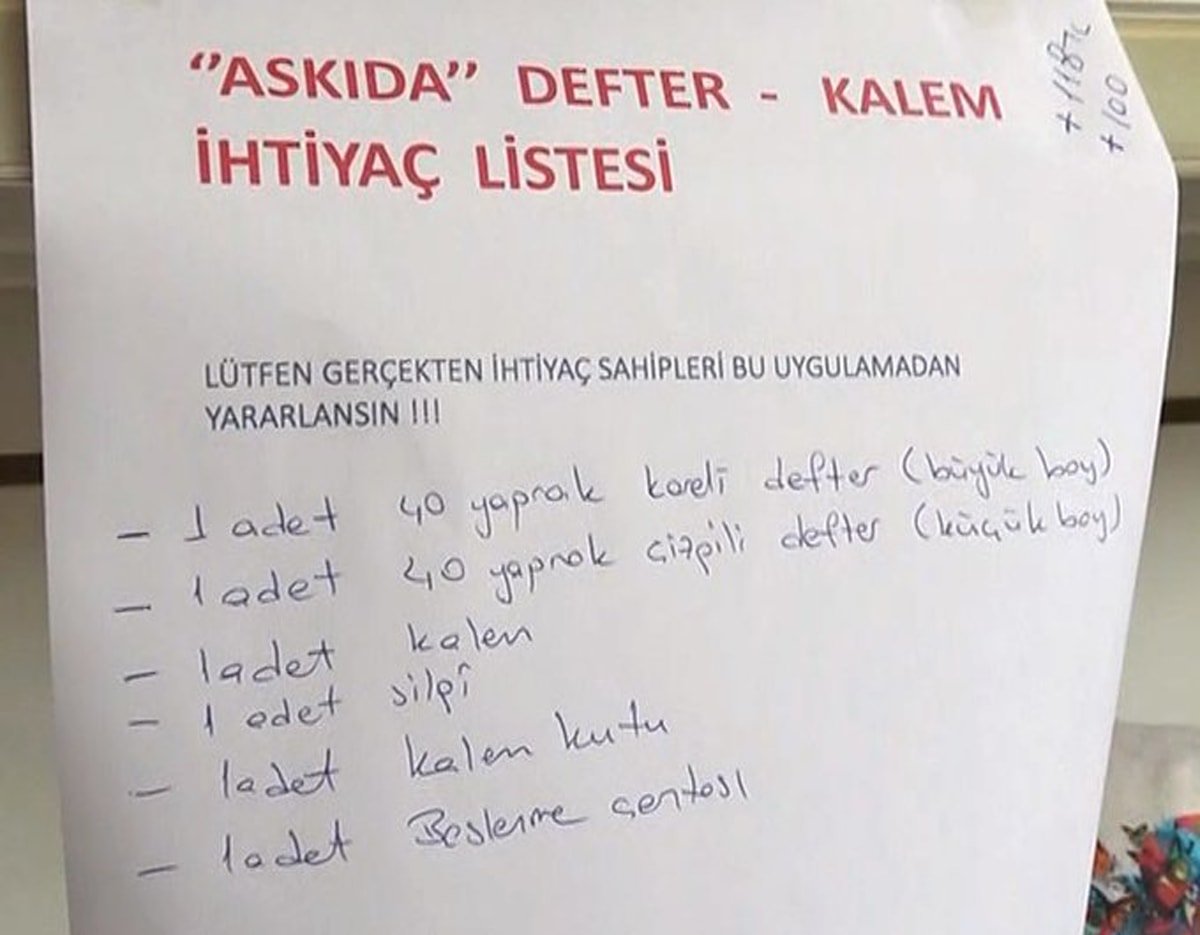 ‘’ASKIDA’’ DEFTER - KALEM
İHTİYAÇ LİSTESİ
+118TL
+100
LÜTFEN GERÇEKTEN İHTİYAÇ SAHİPLERİ BU UYGULAMADAN
YARARLANSIN !!!
- 1 adet 40 yaprak kareli defter (büyük boy)
- 1 adet 40 yaprak çizgili defter (küçük boy)
- 1 adet kalem
- 1 adet silgi
- 1 adet kalem kutu
- 1 adet Beslenme çantası